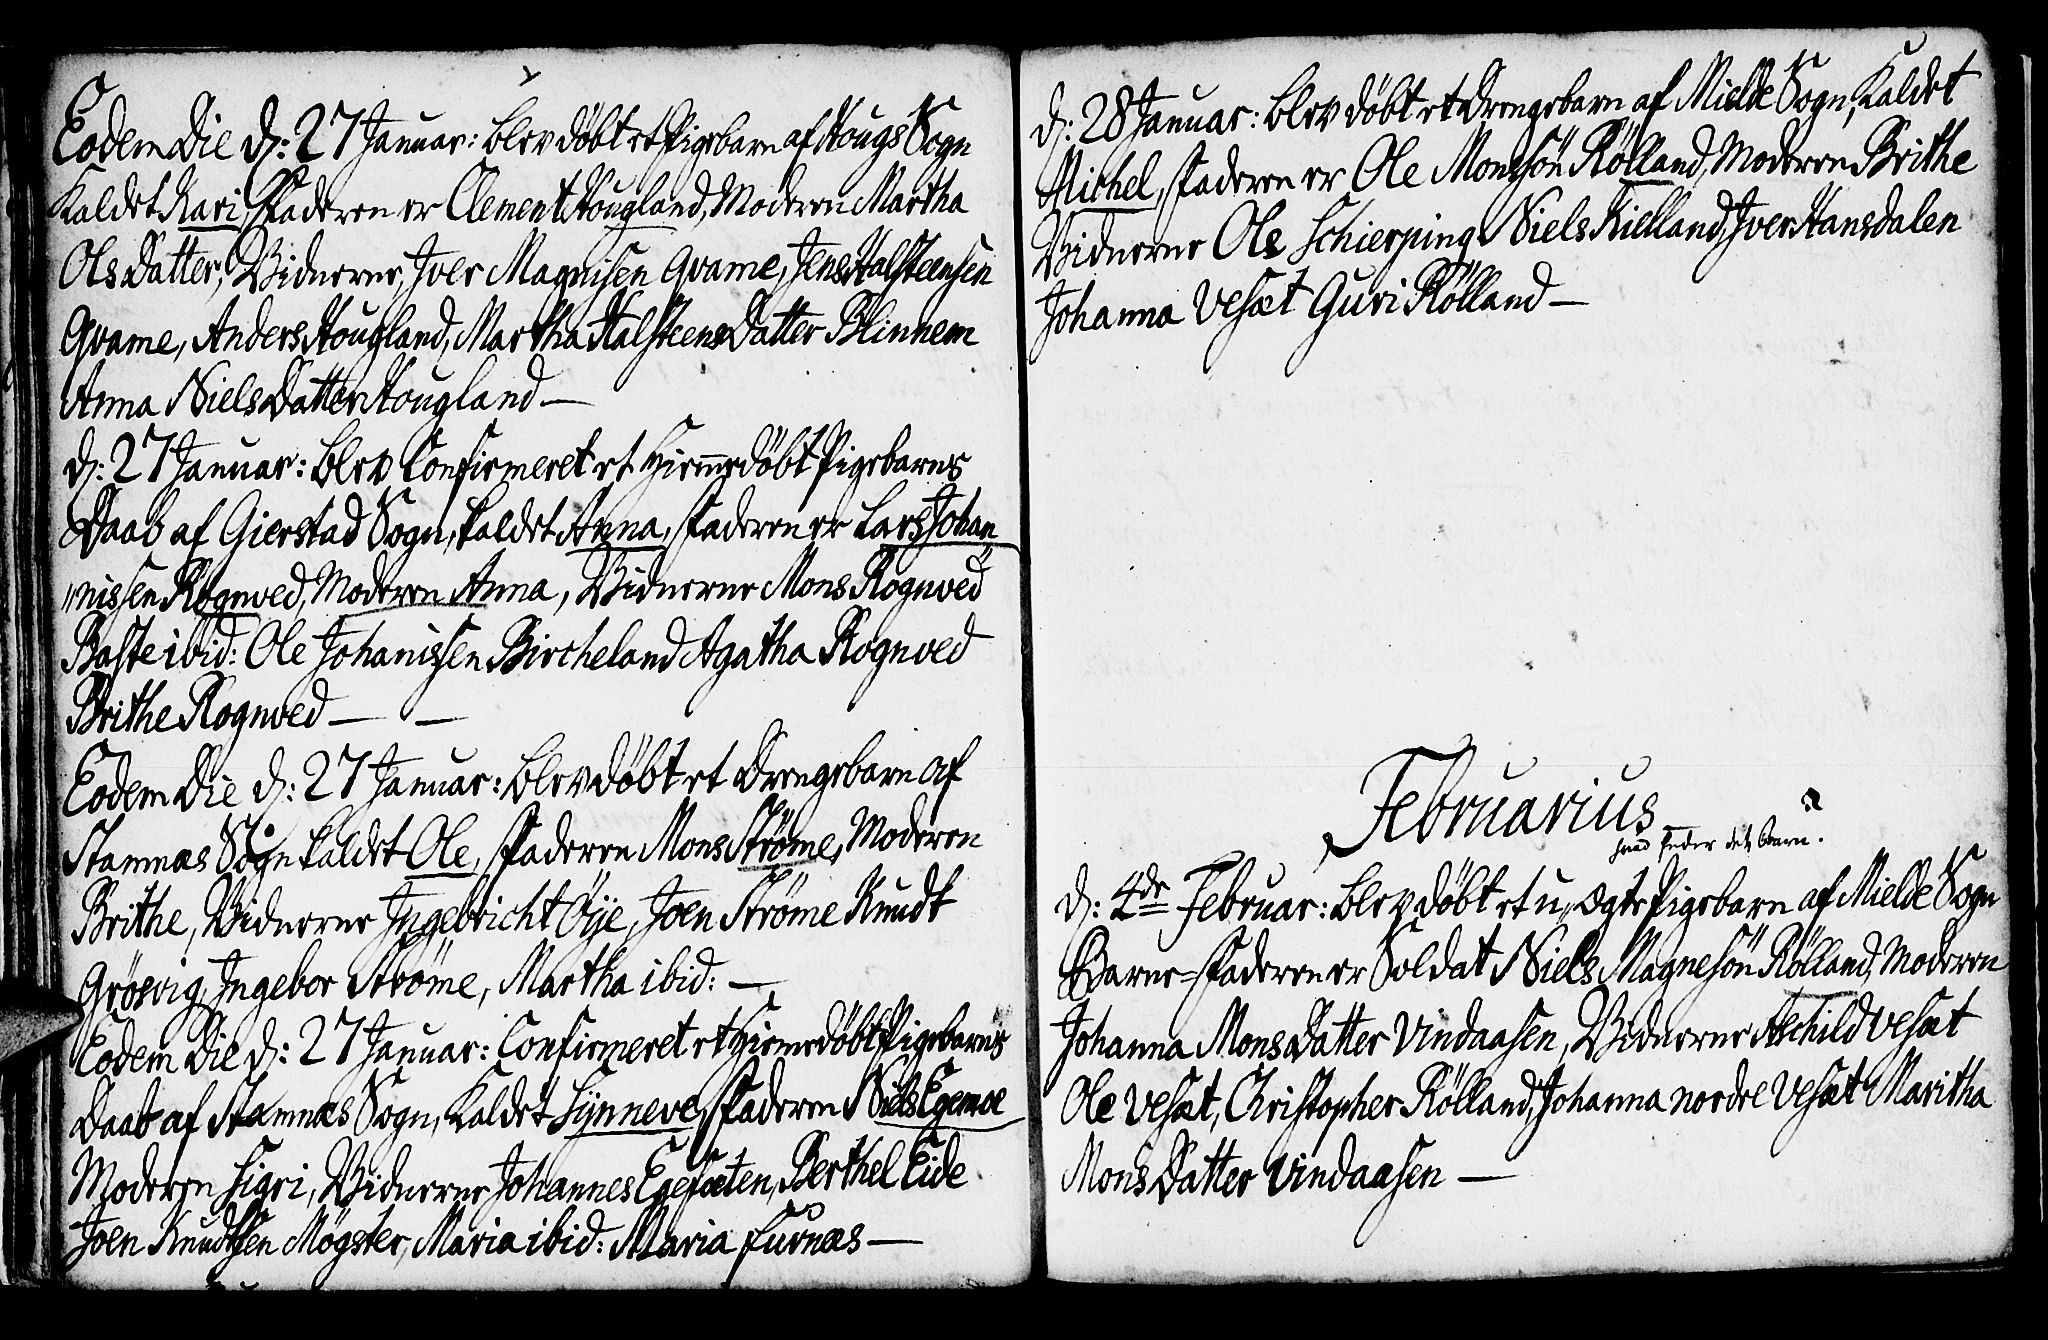 Eodem Die d: 27 Januar: blev døbt et Pigebarn af Hougs Sogn
Kaldet Kari, Faderen er Clement Hougland, Moderen Martha
Ols Datter, Vidnerne, Iver Magnisen Qvame, Jens Halsteensen
Qvame, Anders Hougland, Martha Halsteens Datter Blinnem
Anna Niels Datter Hougland —
d: 27 Januar: blev Confirmeret et Hiemedøbt Pigebarns
Daab af Gierstad Sogn, kaldet Anna, Faderen er Lars Johan„
„nissen Rognved, Moderen Anna, Vidnerne Mons Rognved
Baste ibid: Ole Johanissen Bircheland Agatha Rognved
Brithe Rognved — —
Eodem Die d: 27 Januar: blev døbt et Drengebarn af
Stamnæs Sogn kaldet Ole, Faderen Mons Strøme, Moderen
Brithe, Vidnerne Ingebricht Øÿe, Joen Strøme Knudt
Grøsvig, Ingebor Strøme, Martha ibid: —
Eodem Die d: 27 Januar: Confirmeret et Hiemedøbt Pigebarns
Daab af Stamnæs Sogn, Kaldet Sÿnneve, Faderen Niels Egemoe
Moderen Sigri, Vidnerne Johannes Egesæten, Berthel Eide
Joen Knudtsen Møgster, Maria ibid: Maria Furnæs —
d: 28 Januar: blev døbt et Drengebarn af Mielde Sogn, Kaldet
Michel, Faderen er Ole Monssøn Rølland, Moderen Brithe
Vidnerne Ole Schierping Niels Kielland, Iver Hansdalen
Johanna Vesæt Guri Rølland —
Februarius
hvad heder det Barn?
d: 4de Februar: blev døbt et u„ægte Pigebarn af Mielde Sogn
Barne=Faderen er Soldat Niels Magnesøn Rølland, Moderen
Johanna Mons Datter Vindaasen, Vidnerne Aschild Vesæt
Ole Vesæt, Christopher Rølland, Johanna nordre Vesæt Maritha
Mons Datter Vindaasen —